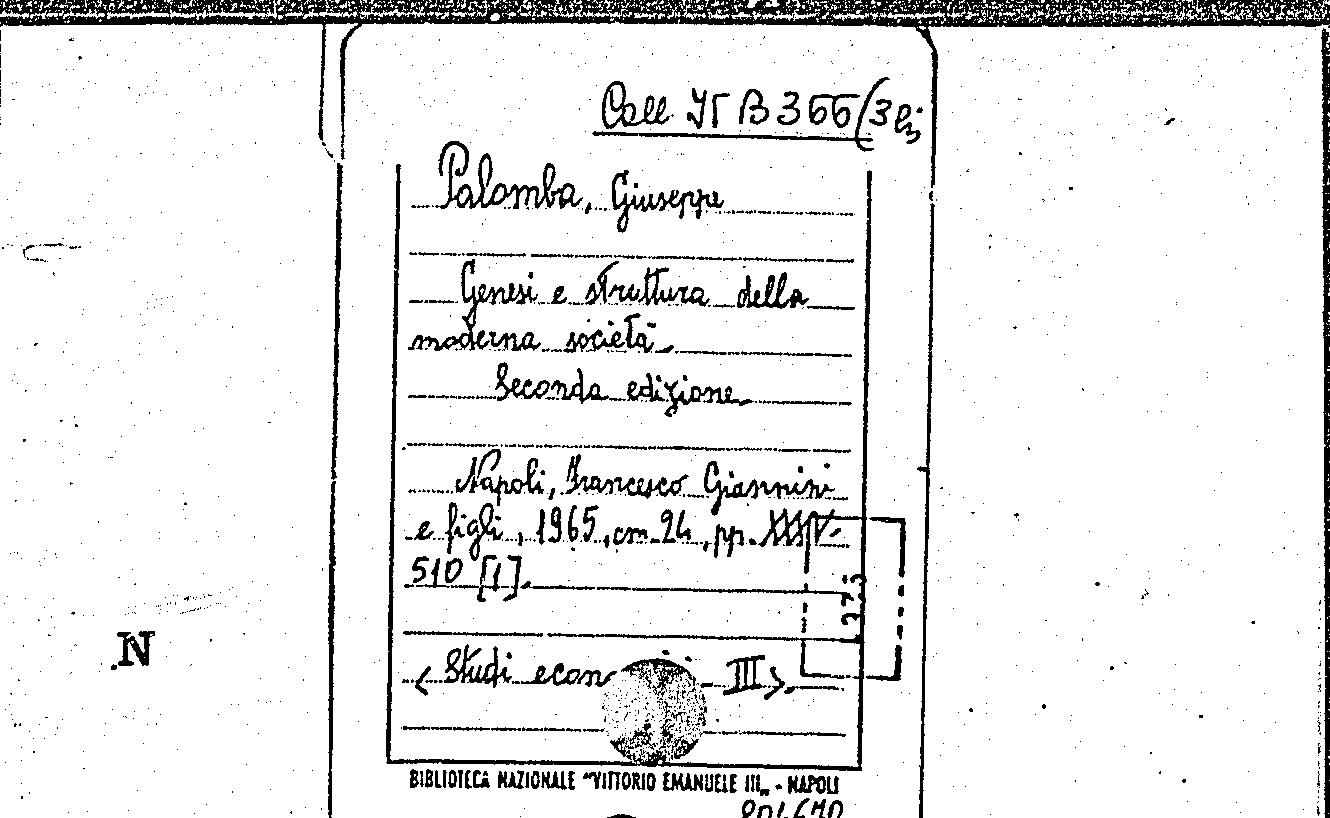 Coll. It B 366 (3 bis
Palomba, Giuseppe
Genesi e struttura della
moderna società.
Seconda edizione.
Napoli, Francesco Giannini
e figli, 1965, cm. 24, pp. XXXIV-
510 [1].
275
< Studi econ III >.
N
BIBLIOTECA NAZIONALE "VITTORIO EMANUELE III„ - NAPOLI